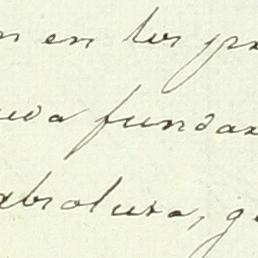 n en los pr
ueda fundar
absoluta, g